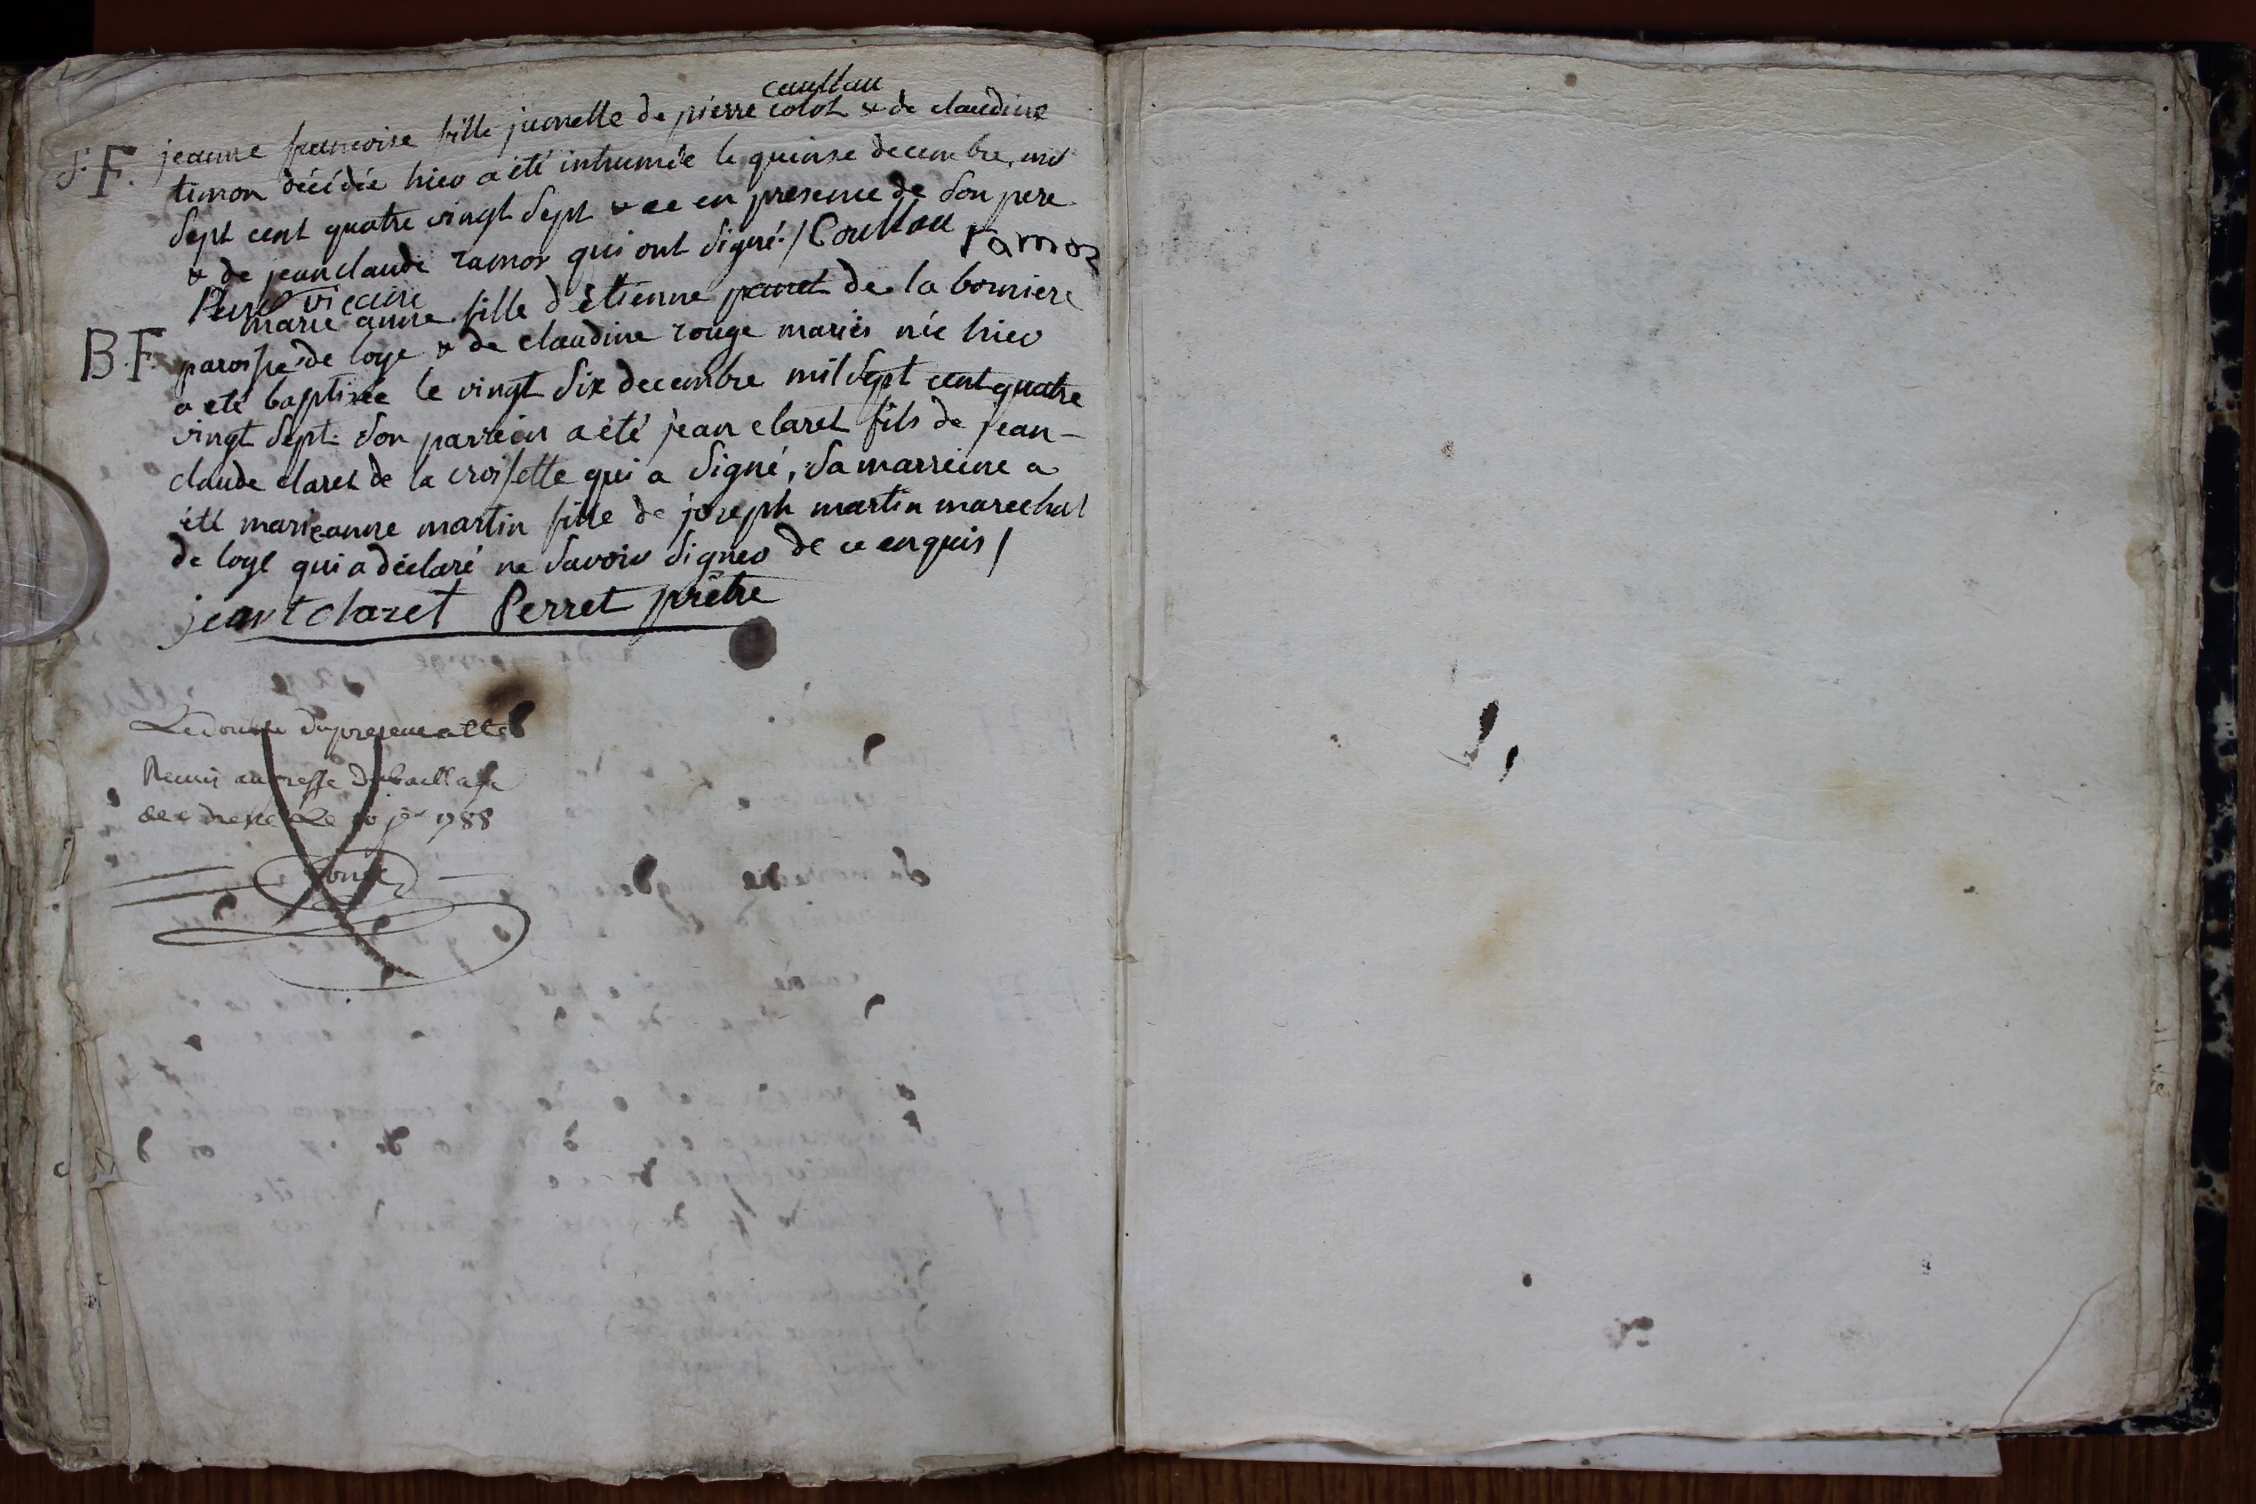 coullau
S. F. jeanne francoise fille jumelle de pierre colol & de claudine
timon décédée hier a été inhumée le quinse decembre mil
sept cent quatre vingt sept & ce en presence de son pere
& de jean claude ramox qui ont signé./ Coullau ramox
vicaire
B. F. marie anne fille d'etienne de la borniere
paroisse de loye & de claudine rouge mariés née hier
a été baptisée le vingt six decembre mil sept cent quatre
vingt sept. son parrein a été jean claret fils de jean-
claude claret de la croisette qui a signé, sa marreine a
été marieanne martin fille de joseph martin marechal
de loye qui a déclaré ne savoir signer de ce enquis /
jean claret Perret prêtre
Le double du present
Remis au greffe du bailliage
de Le 10 jer 1788